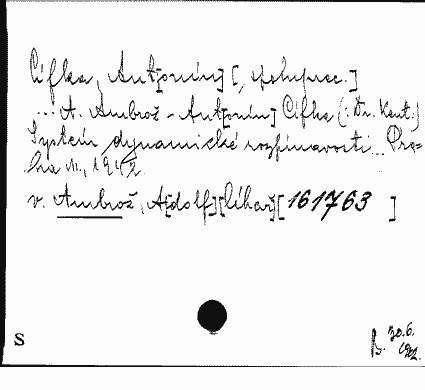 Cifka, Ant[onín] [, spoluprac.]
... A. Ambrož - Ant[onín] Cifka (: Dr. Kent.)
Systém dynamické rozpínavosti... Pra=
ha N., 1942.
v. Ambrož, A[dolf] [lékař] [161763]
S
B. 30.6.